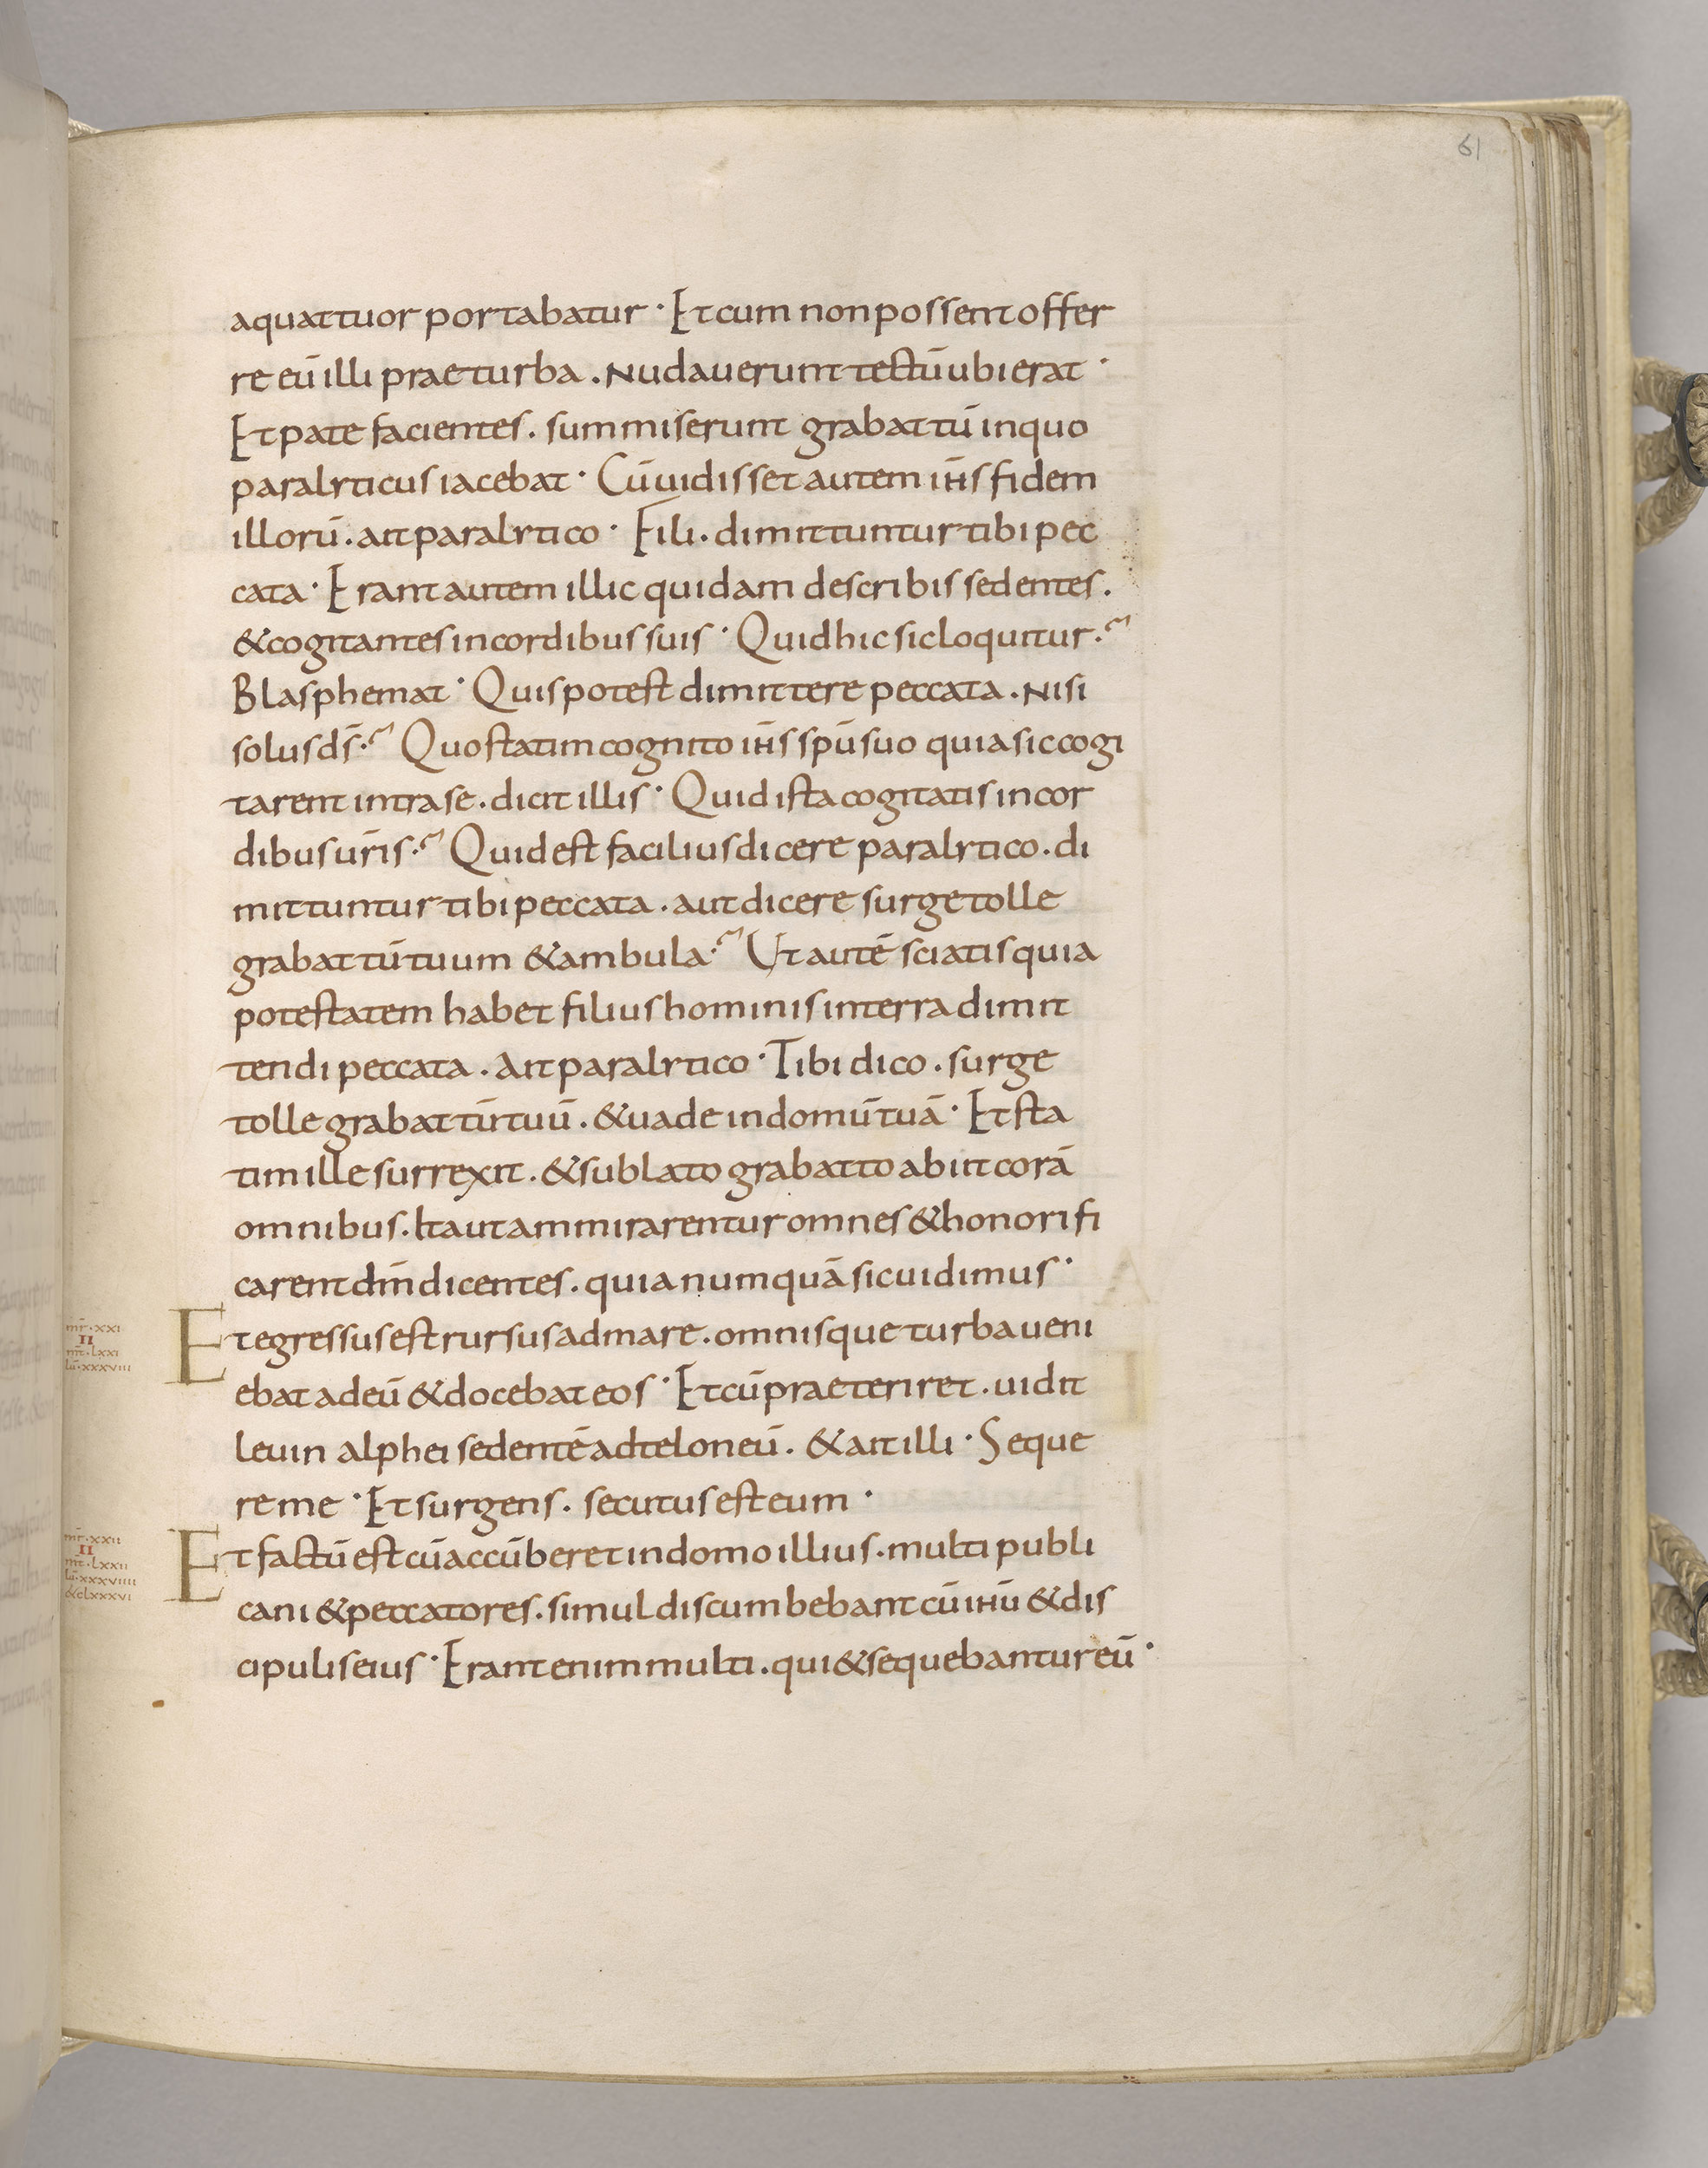 61
aquattuor portabatur · Et cum non possent offer
re eū illi prae turba . Nudauerunt tectū ubi erat ·
Et pate facientes . summiserunt grabattū in quo
paralyticus iacebat · Cū uidisset autem ih̄s fidem
illorū . ait paralytico · Fili . dimittuntur tibi pec
cata · Erant autem illic quidam de scribis sedentes .
& cogitantes in cordibus suis · Quid hic sic loquitur ?
Blasphemat · Quis potest dimittere peccata . Nisi
solus d̄s ? Quo statim cognito ih̄s sp̄u suo quia sic cogi
tarent intra se . dicit illis · Quid ista cogitatis in cor
dibus ur̄is ? Quid est facilius dicere paralytico . di
mittuntur tibi peccata . aut dicere surge tolle
grabattū tuum & ambula ? Ut autē sciatis quia
potestatem habet filius hominis in terra dimit
tendi peccata . Ait paralytico · Tibi dico . surge
tolle grabattū tuū . & uade in domū tuā · Et sta
tim ille surrexit . & sublato grabatto abiit corā
omnibus . Ita ut ammirarentur omnes & honorifi
carent dm̄ dicentes . quia numquā sic uidimus ·
mr̄ · xxi
II
mt̄ · lxxi
lū · xxxviii
Et egressus est rursus ad mare . omnisque turba ueni
ebat ad eū & docebat eos · Et cū praeteriret . uidit
leuin alphei sedentē ad teloneū . & ait illi · Seque
re me · Et surgens . secutus est eum ·
mr̄ · xxii
II
mt̄ · lxxii
lū · xxxviiii
& clxxxvi
Et factū est cū accūberet in domo illius . multi publi
cani & peccatores . simul discumbebant cū ihū & dis
cipuli eius · Erant enim multi . qui & sequebantur eū ·